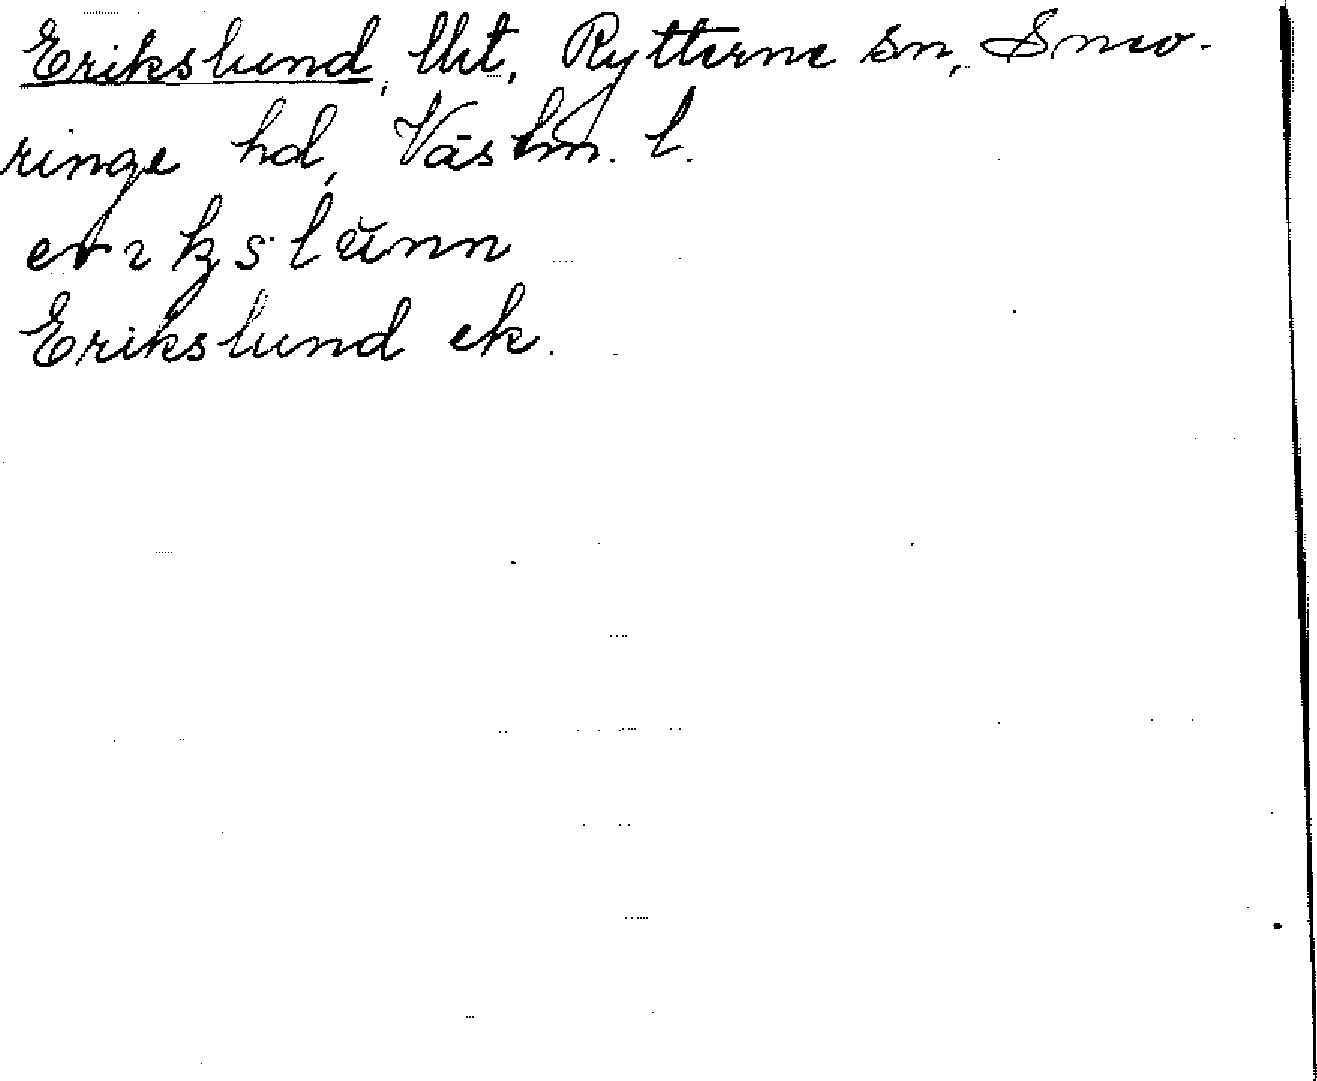 Erikslund, lht, Rytterne sn, Snev-
ringe hd, Västm. l.
Erikslund ek.